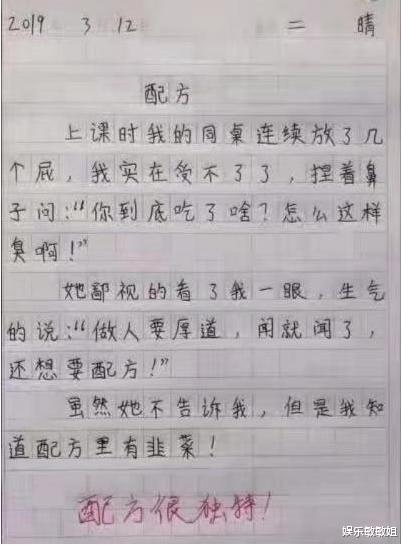 2019 3 12 二 晴
配方
上课时我的同桌连续放了几
个屁，我实在受不了了，捏着鼻
子问：“你到底吃了啥？怎么这样
臭啊！”
她鄙视的看了我一眼，生气
的说：“做人要厚道，闻就闻了，
还想要配方！”
虽然她不告诉我，但是我知
道配方里有韭菜！
配方很独特！
娱乐敏敏姐